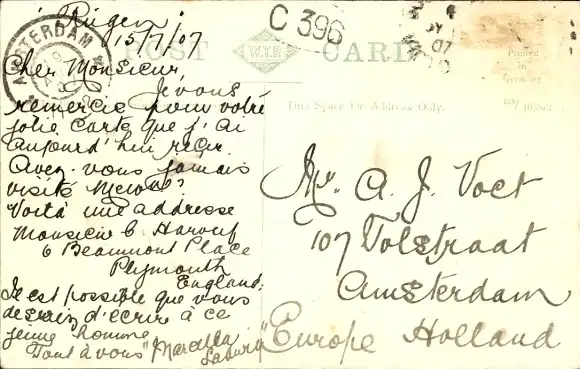 15/7/07
AMSTERDAM
C 396
07
POST CARD
W.T.P.
Printed
in
Germany
This Space For Address Only.
Cher Monsieur,
Je vous
remercie pour votre
jolie carte que j'ai
aujourd'hui reçu.
Avez-vous jamais
visité
Voilà une addresse
Monsieur
6 Beaumont Place
Plymouth
England.
Il est possible que vous
d'écrire à ce
jeune homme
Tout à vous "Marcella
Mr. A. J. Voet
107 Tolstraat
Amsterdam
Europe Holland